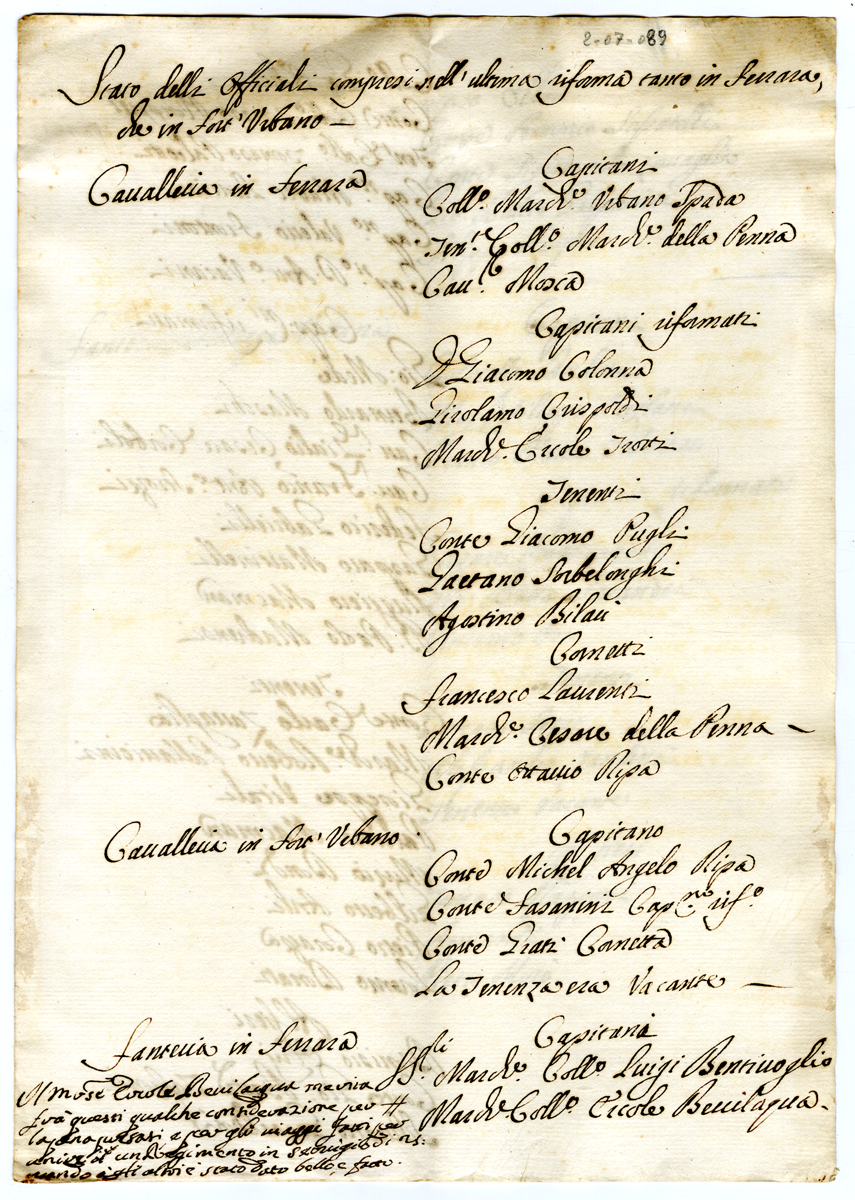 2-07-089
Stato delli Officiali compresi nell'ultima riforma tanto in Ferrara,
che in Fort'Urbano —
Cavalleria in Ferrara
Capitani
Coll.º March.e Urbano Spada
Ten.te Coll.º March.e della Penna
Cav.e Mosca
Capitani riformati
D Giacomo Colonna
Girolamo Crispoldi
March.e Ercole Trotti
Tenenti
Conte Giacomo Pugli
Gaetano Sorbelonghi
Agostino Bilaci
Cornetti
Francesco Laurenti
March.e Cesare della Penna —
Conte Ottavio Ripa
Cavalleria in Fort'Urbano
Capitano
Conte Michel Angelo Ripa
Conte Fasanini Cap.no rif.º
Conte Grati Cornetta
La Tenenza era Vacante —
Fanteria in Ferrara
Capitani
SS.li March.e Coll.º Luigi Bentivoglio
March.e Coll.º Ercole Bevilaqua.
Il Ercole Bevilaqua merita
frà questi qualche considerazione per
e per gli viaggi fatti per
in servigio di
mando agli altri è stato dato bello, e fatto.